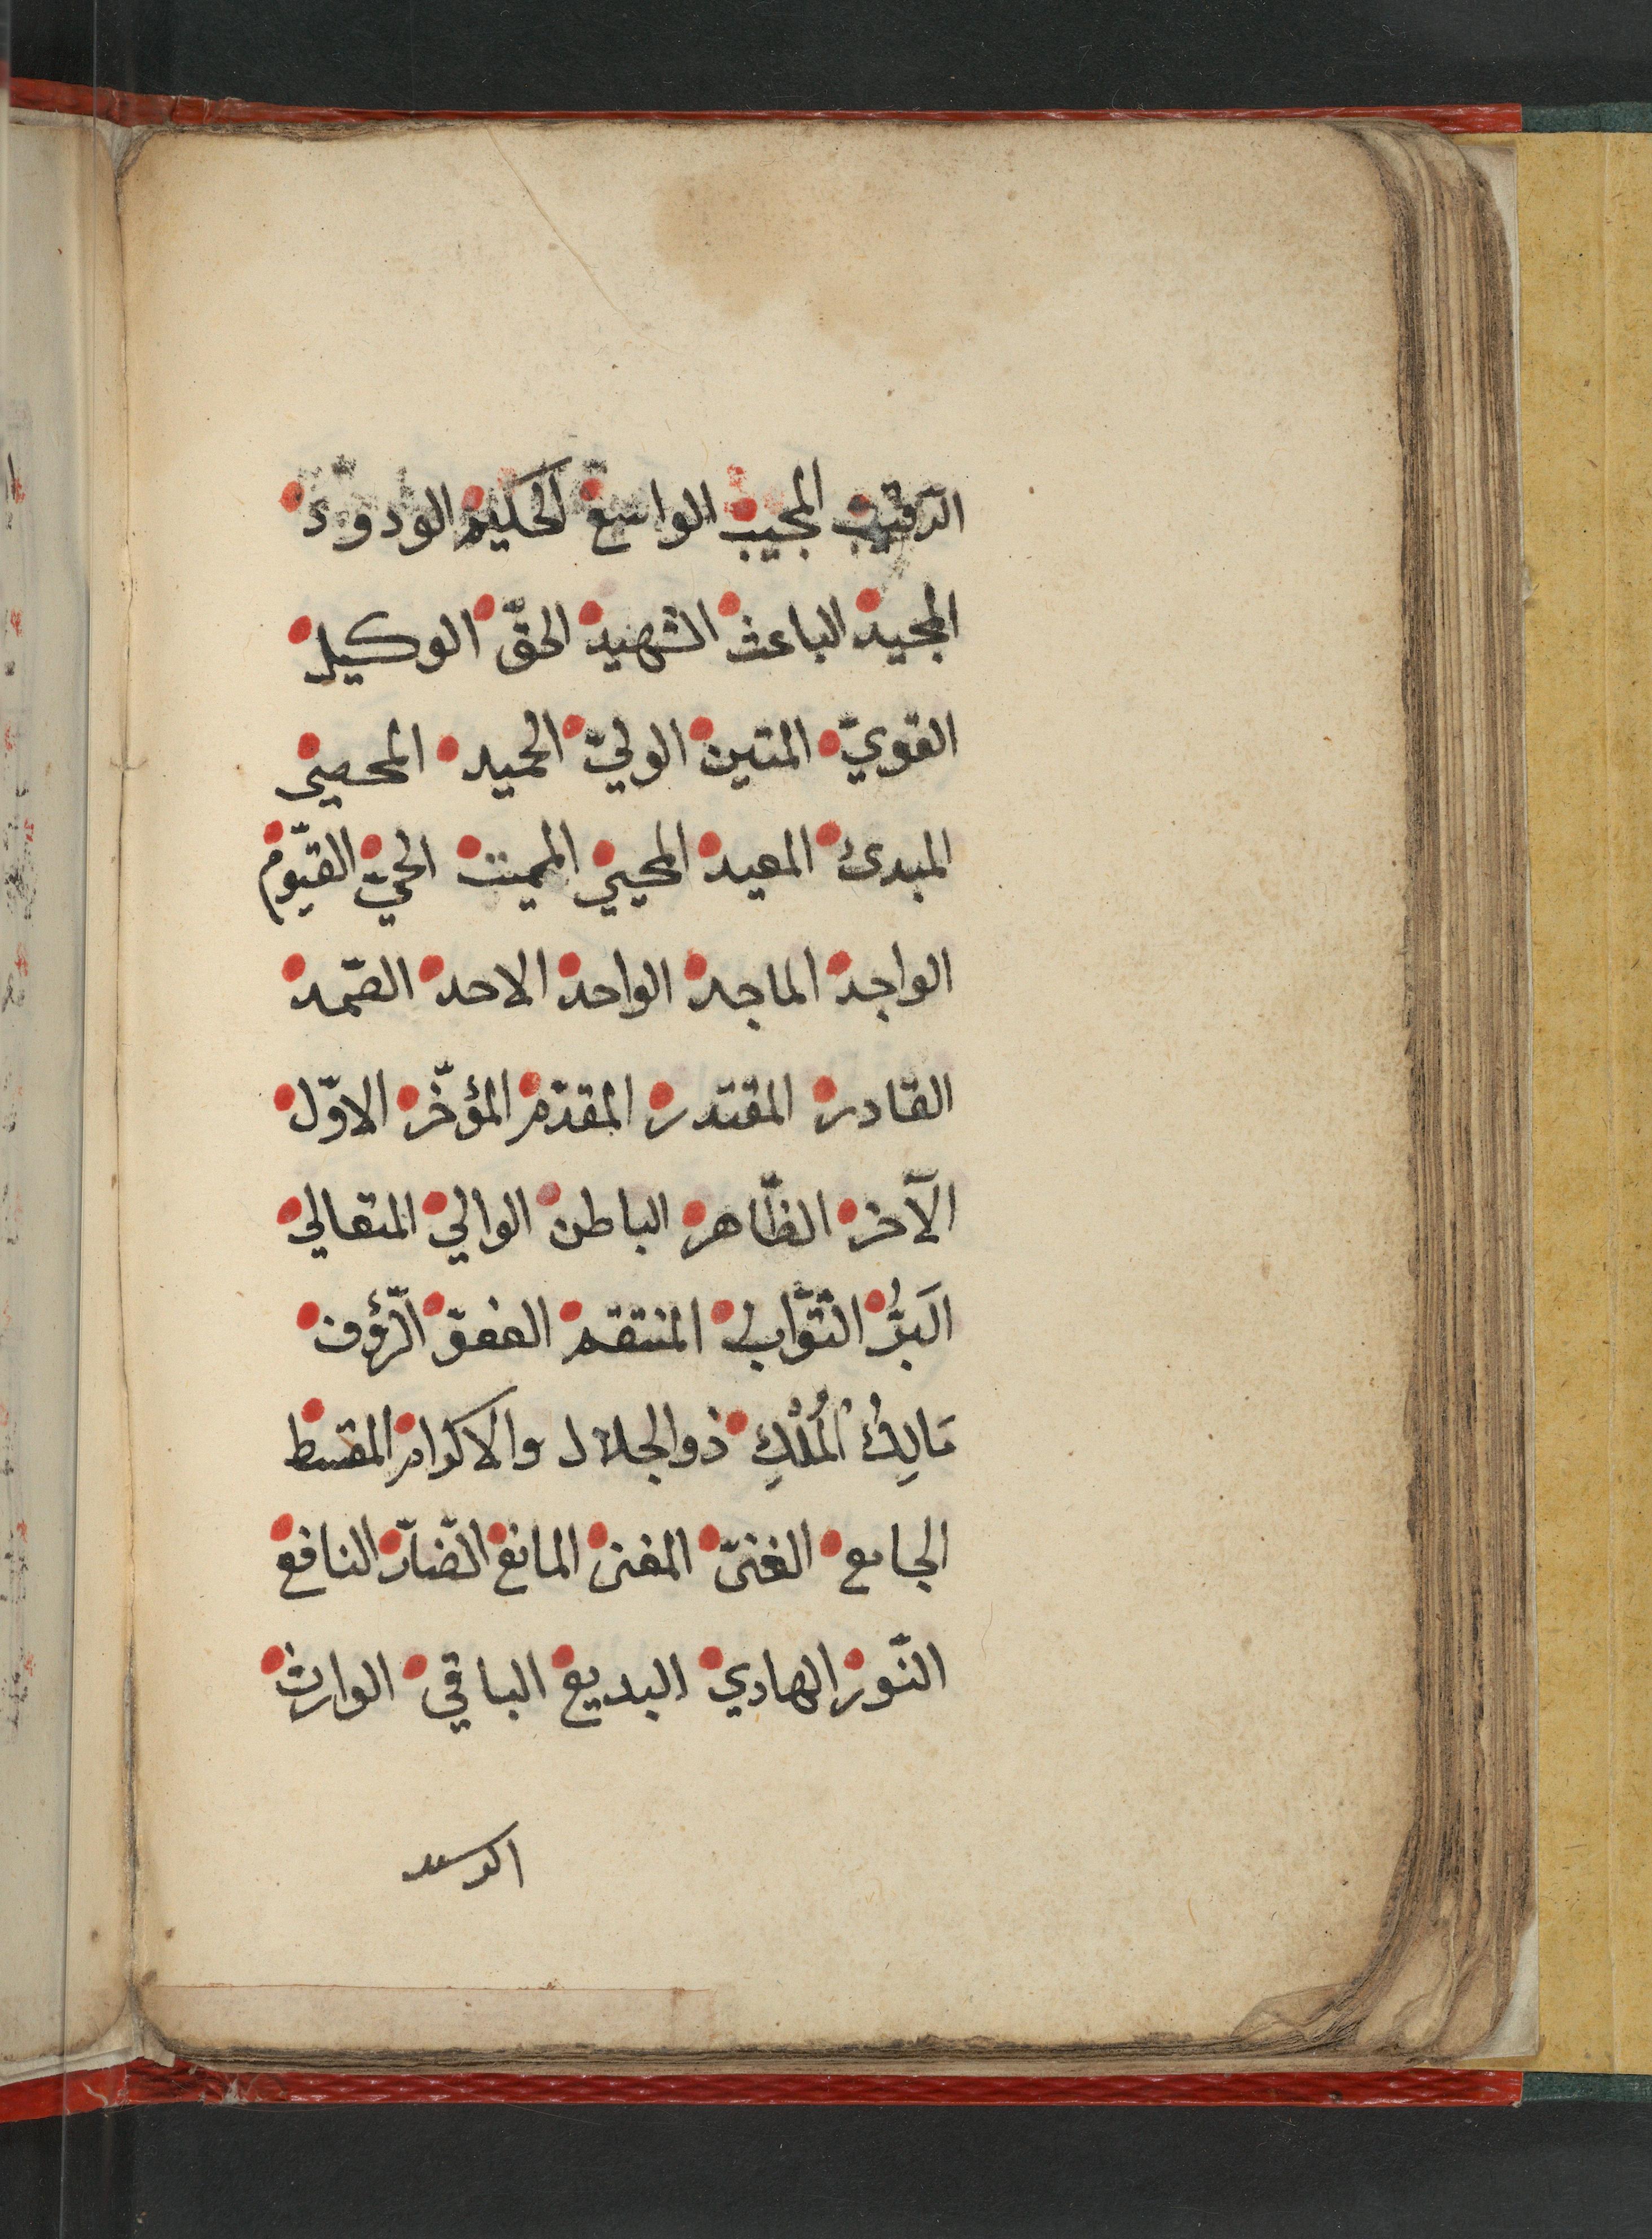 الرّقيب المجيب الواسع الحكيم الودود
المجيد الباعث الشهيد الحقّ الوكيل
القويّ المتين الوليّ الحميد المحصي
المبدئ المعيد المحيي المميت الحيّ القيّوم
الواجد الماجد الواحد الاحد الصّمد
القادر المقتدر المقدّم المؤخّر الاوّل
الآخر الظّاهر الباطن الوالي المتعالي
البَرُّ التّوّاب المنتقم العفوّ الرّؤف
مَالِكُ المُلْكِ ذو الجلال والاكرام المقسط
الجامع الغنىّ المغنى المانع الضّارّ النافع
النّور الهادي البديع الباقي الوارث
الرسيد